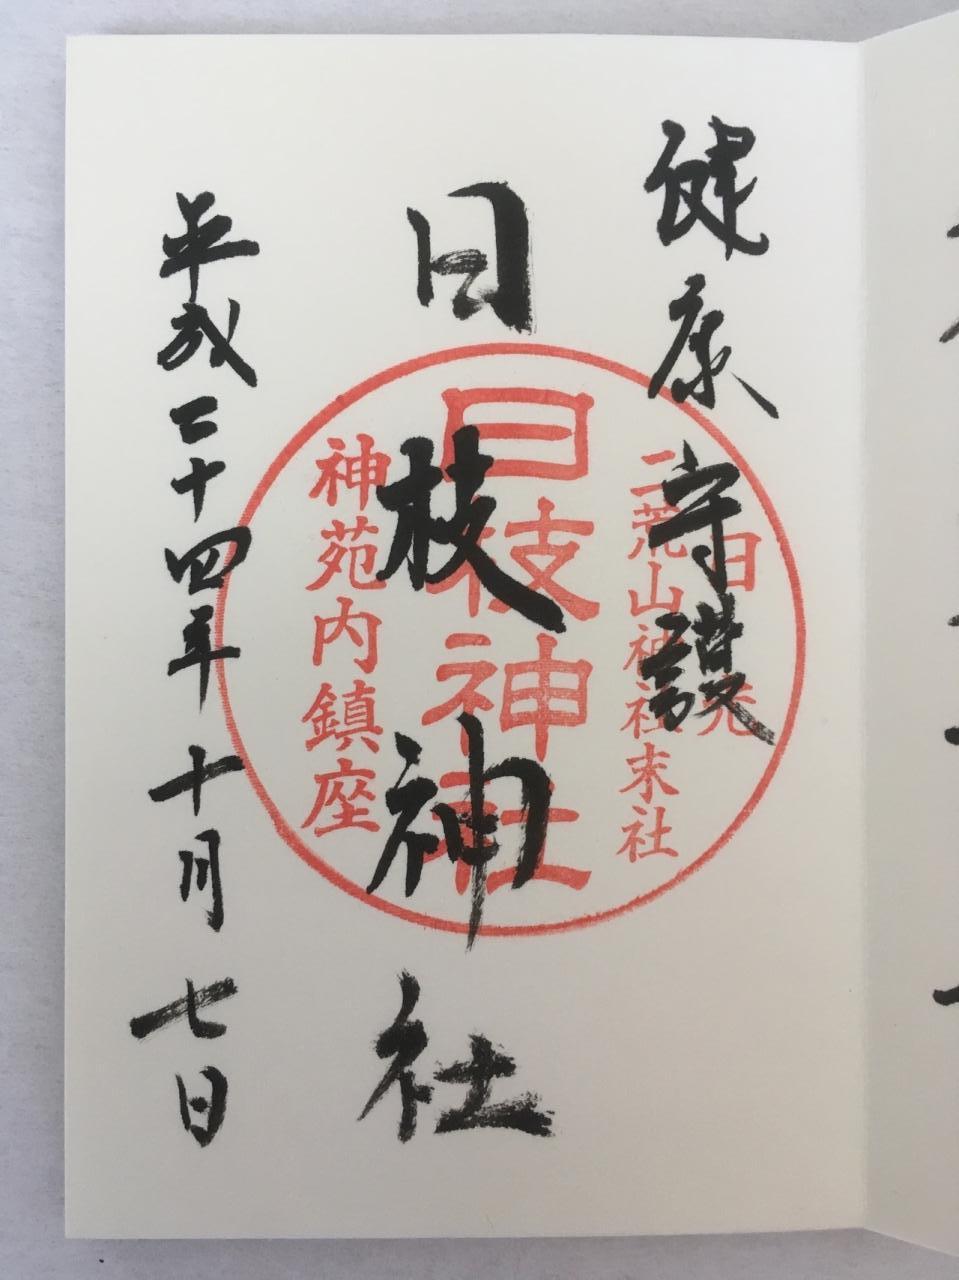 健康守護
日枝神社
平成二十四年十月七日
日光
二荒山神社末社
日枝神社
神苑内鎮座